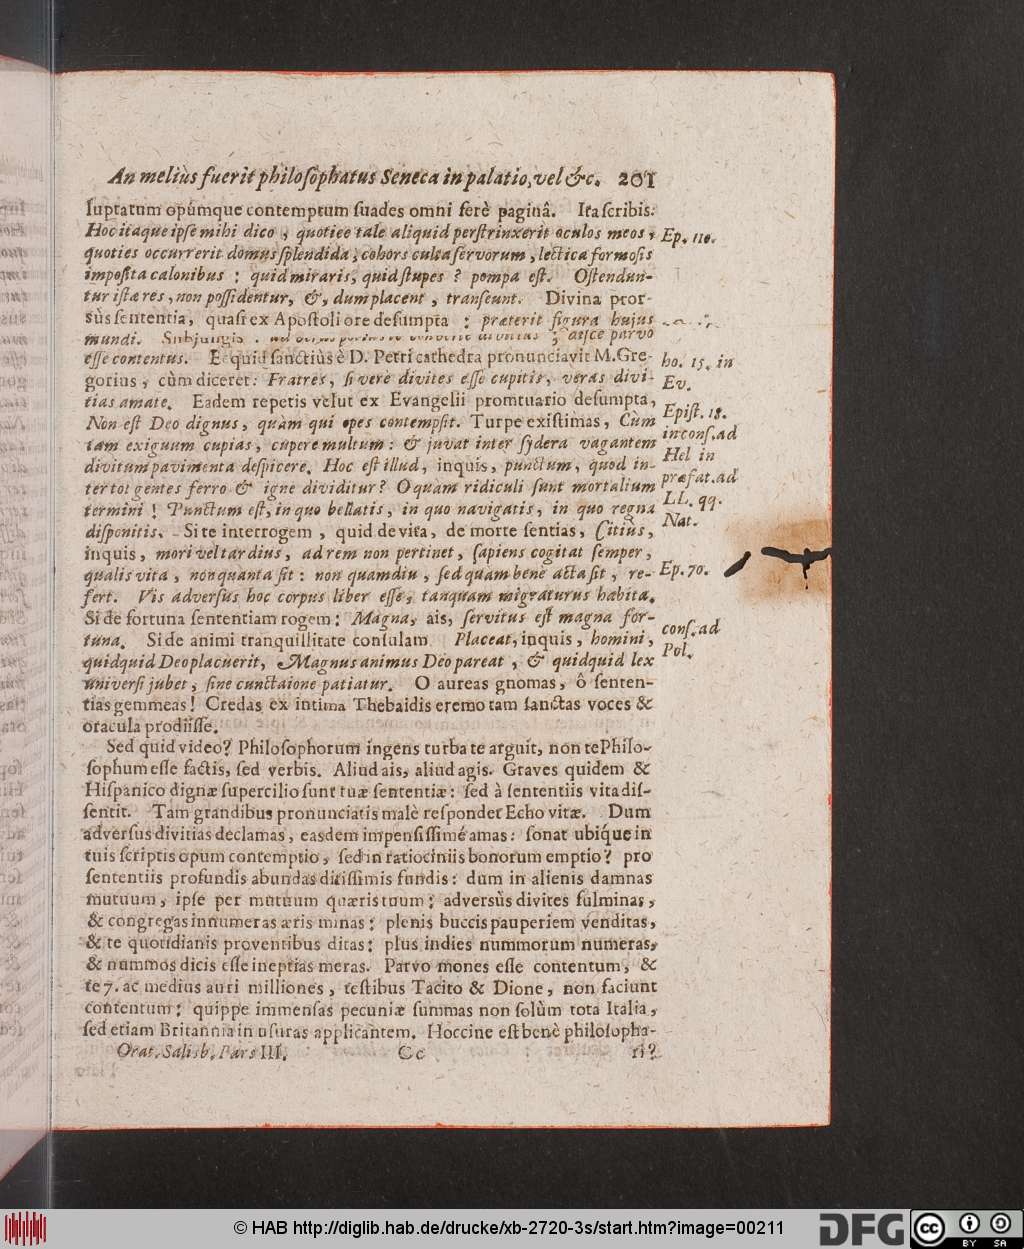 An meliùs fuerit philosophatus Seneca in palatio, vel &c. 201
luptatum opúmque contemptum suades omni ferè paginâ. Ita scribis:
Hoc itaque ipse mihi dico, quoties tale aliquid perstrinxerit oculos meos, Ep. 110.
quoties occurrerit domus splendida, cohors culta servorum, lectica formosis
imposita calonibus: quid miraris, quid stupes? pompa est. Ostendun-
tur istæ res, non possidentur, &, dum placent, transeunt. Divina pror-
sùs sententia, quasi ex Apostoli ore desumpta: præterit figura hujus
mundi. Subjungis. disce parvo
esse contentus. Ecquid sanctiùs è D. Petri cathedra pronunciavit M. Gre- ho. 15. in
gorius, cùm diceret: Fratres, si verè divites esse cupitis, veras divi- Ev.
tias amate. Eadem repetis velut ex Evangelii promtuario desumpta,
Non est Deo dignus, quàm qui opes contempsit. Turpe existimas, Cùm Epist. 18.
tam exiguum cupias, cupere multum: & juvat inter sydera vagantem in cons. ad
divitum pavimenta despicere. Hoc est illud, inquis, punctum, quod in- Hel in
ter tot gentes ferro & igne dividitur? O quàm ridiculi sunt mortalium præfat. ad
termini! Punctum est, in quo bellatis, in quo navigatis, in quo regna LL. qq.
disponitis. Si te interrogem, quid de vita, de morte sentias, Citius, Nat.
inquis, mori vel tardius, ad rem non pertinet, sapiens cogitat semper,
qualis vita, non quanta sit: non quamdiu, sed quam bene acta sit, re- Ep. 70.
fert. Vis adversus hoc corpus liber esse, tanquam migraturus habita.
Si de fortuna sententiam rogem: Magna, ais, servitus est magna for-
tuna. Si de animi tranquillitate consulam Placeat, inquis, homini, cons. ad
quidquid Deo placuerit, Magnus animus Deo pareat, & quidquid lex Pol.
universi jubet, sine cunctaione patiatur. O aureas gnomas, ô senten-
tias gemmeas! Credas ex intima Thebaidis eremo tam sanctas voces &
oracula prodiisse.
Sed quid video? Philosophorum ingens turba te arguit, non te Philo-
sophum esse factis, sed verbis. Aliud ais, aliud agis. Graves quidem &
Hispanico dignæ supercilio sunt tuæ sententiæ: sed à sententiis vita dis-
sentit. Tam grandibus pronunciatis malè respondet Echo vitæ. Dum
adversus divitias declamas, easdem impensissimè amas: sonat ubíque in
tuis scriptis opum contemptio, sed in ratiociniis bonorum emptio? pro
sententiis profundis abundas ditissimis fundis: dum in alienis damnas
mutuum, ipse per mutuum quæris tuum: adversùs divites fulminas,
& congregas innumeras æris minas: plenis buccis pauperiem venditas,
& te quotidianis proventibus ditas: plus indies nummorum numeras,
& nummos dicis esse ineptias meras. Parvo mones esse contentum, &
te 7. ac medius auri milliones, testibus Tacito & Dione, non faciunt
contentum: quippe immensas pecuniæ summas non solùm tota Italia,
sed etiam Britannia in usuras applicantem. Hoccine est benè philosopha-
Orat. Salisb. Pars III. Cc ri?
© HAB http://diglib.hab.de/drucke/xb-2720-3s/start.htm?image=00211
DFG
cc BY SA